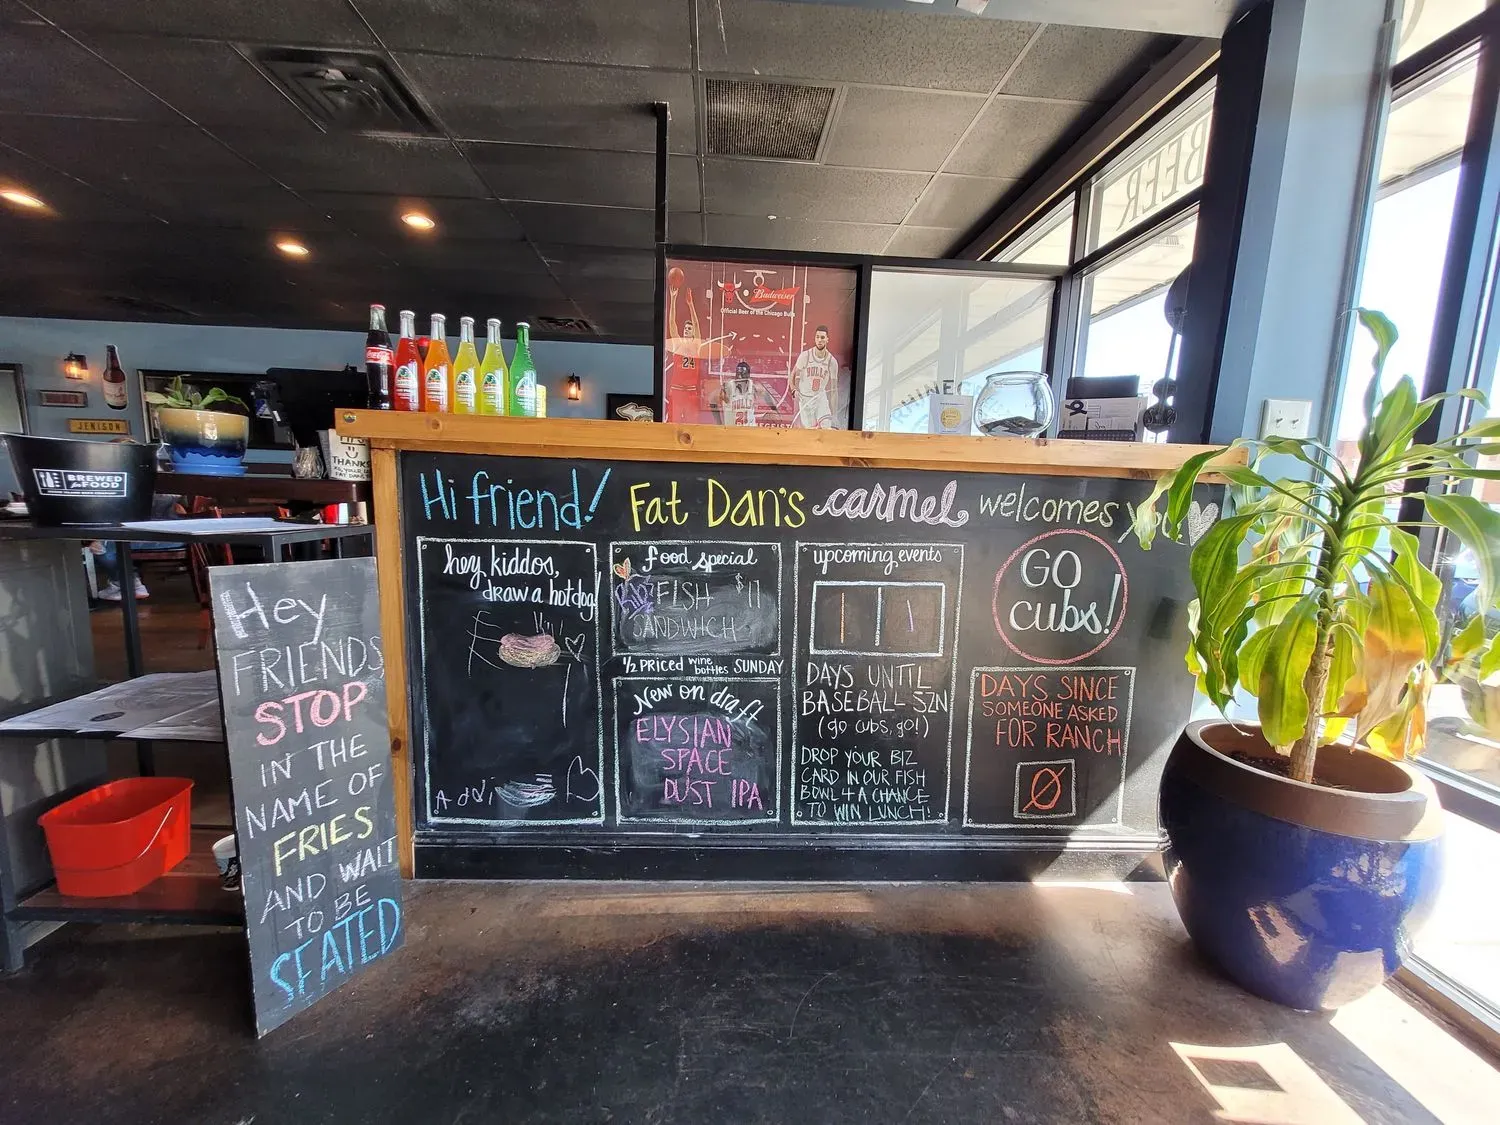 BEER
Budweiser
Official Beer of the Chicago Bulls
24
BULLS
8
JENISON
BREWED
for FOOD
THANKS
Hi friend!
Fat Dan's carmel welcomes you
hey kiddos,
draw a hotdog!
Addi
food special
FISH $11
SANDWICH
1/2 PRICED wine bottles SUNDAY
New on draft
ELYSIAN
SPACE
DUST IPA
upcoming events
1 1
DAYS UNTIL
BASEBALL SZN
(go cubs, go!)
DROP YOUR BIZ
CARD IN OUR FISH
BOWL 4 A CHANCE
TO WIN LUNCH!
GO
cubs!
DAYS SINCE
SOMEONE ASKED
FOR RANCH
0
Hey
FRIENDS,
STOP
IN THE
NAME OF
FRIES
AND WAIT
TO BE
SEATED